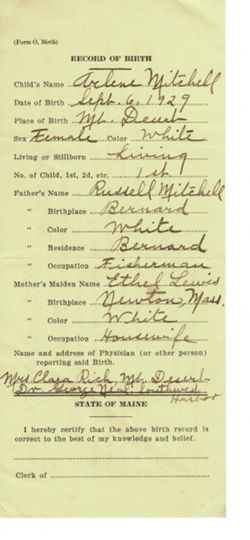 (Form O, Birth)
RECORD OF BIRTH
Child's Name Arlene Mitchell
Date of Birth Sept. 6, 1929
Place of Birth Mt. Desert
Sex Female Color White
Living or Stillborn Living
No. of Child, 1st, 2d, etc. 1st
Father's Name Russell Mitchell
" Birthplace Bernard
" Color White
" Residence Bernard
" Occupation Fisherman
Mother's Maiden Name Ethel Lewis
" Birthplace Newton, Mass.
" Color White
" Occupation Housewife
Name and address of Physician (or other person)
reporting said Birth,
Mrs Clara Rich, Mt. Desert
Dr. George Neal, Southwest
Harbor
STATE OF MAINE
I hereby certify that the above birth record is
correct to the best of my knowledge and belief.
Clerk of